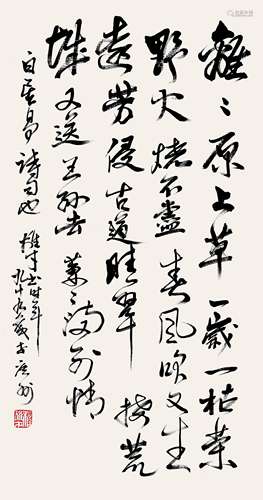 離〻原上草一歲一枯榮
野火燒不盡春風吹又生
遠芳侵古道晴翠接荒
城又送王孫去萋〻滿別情
白居易詩句也 雄才書時年
歲於廣州